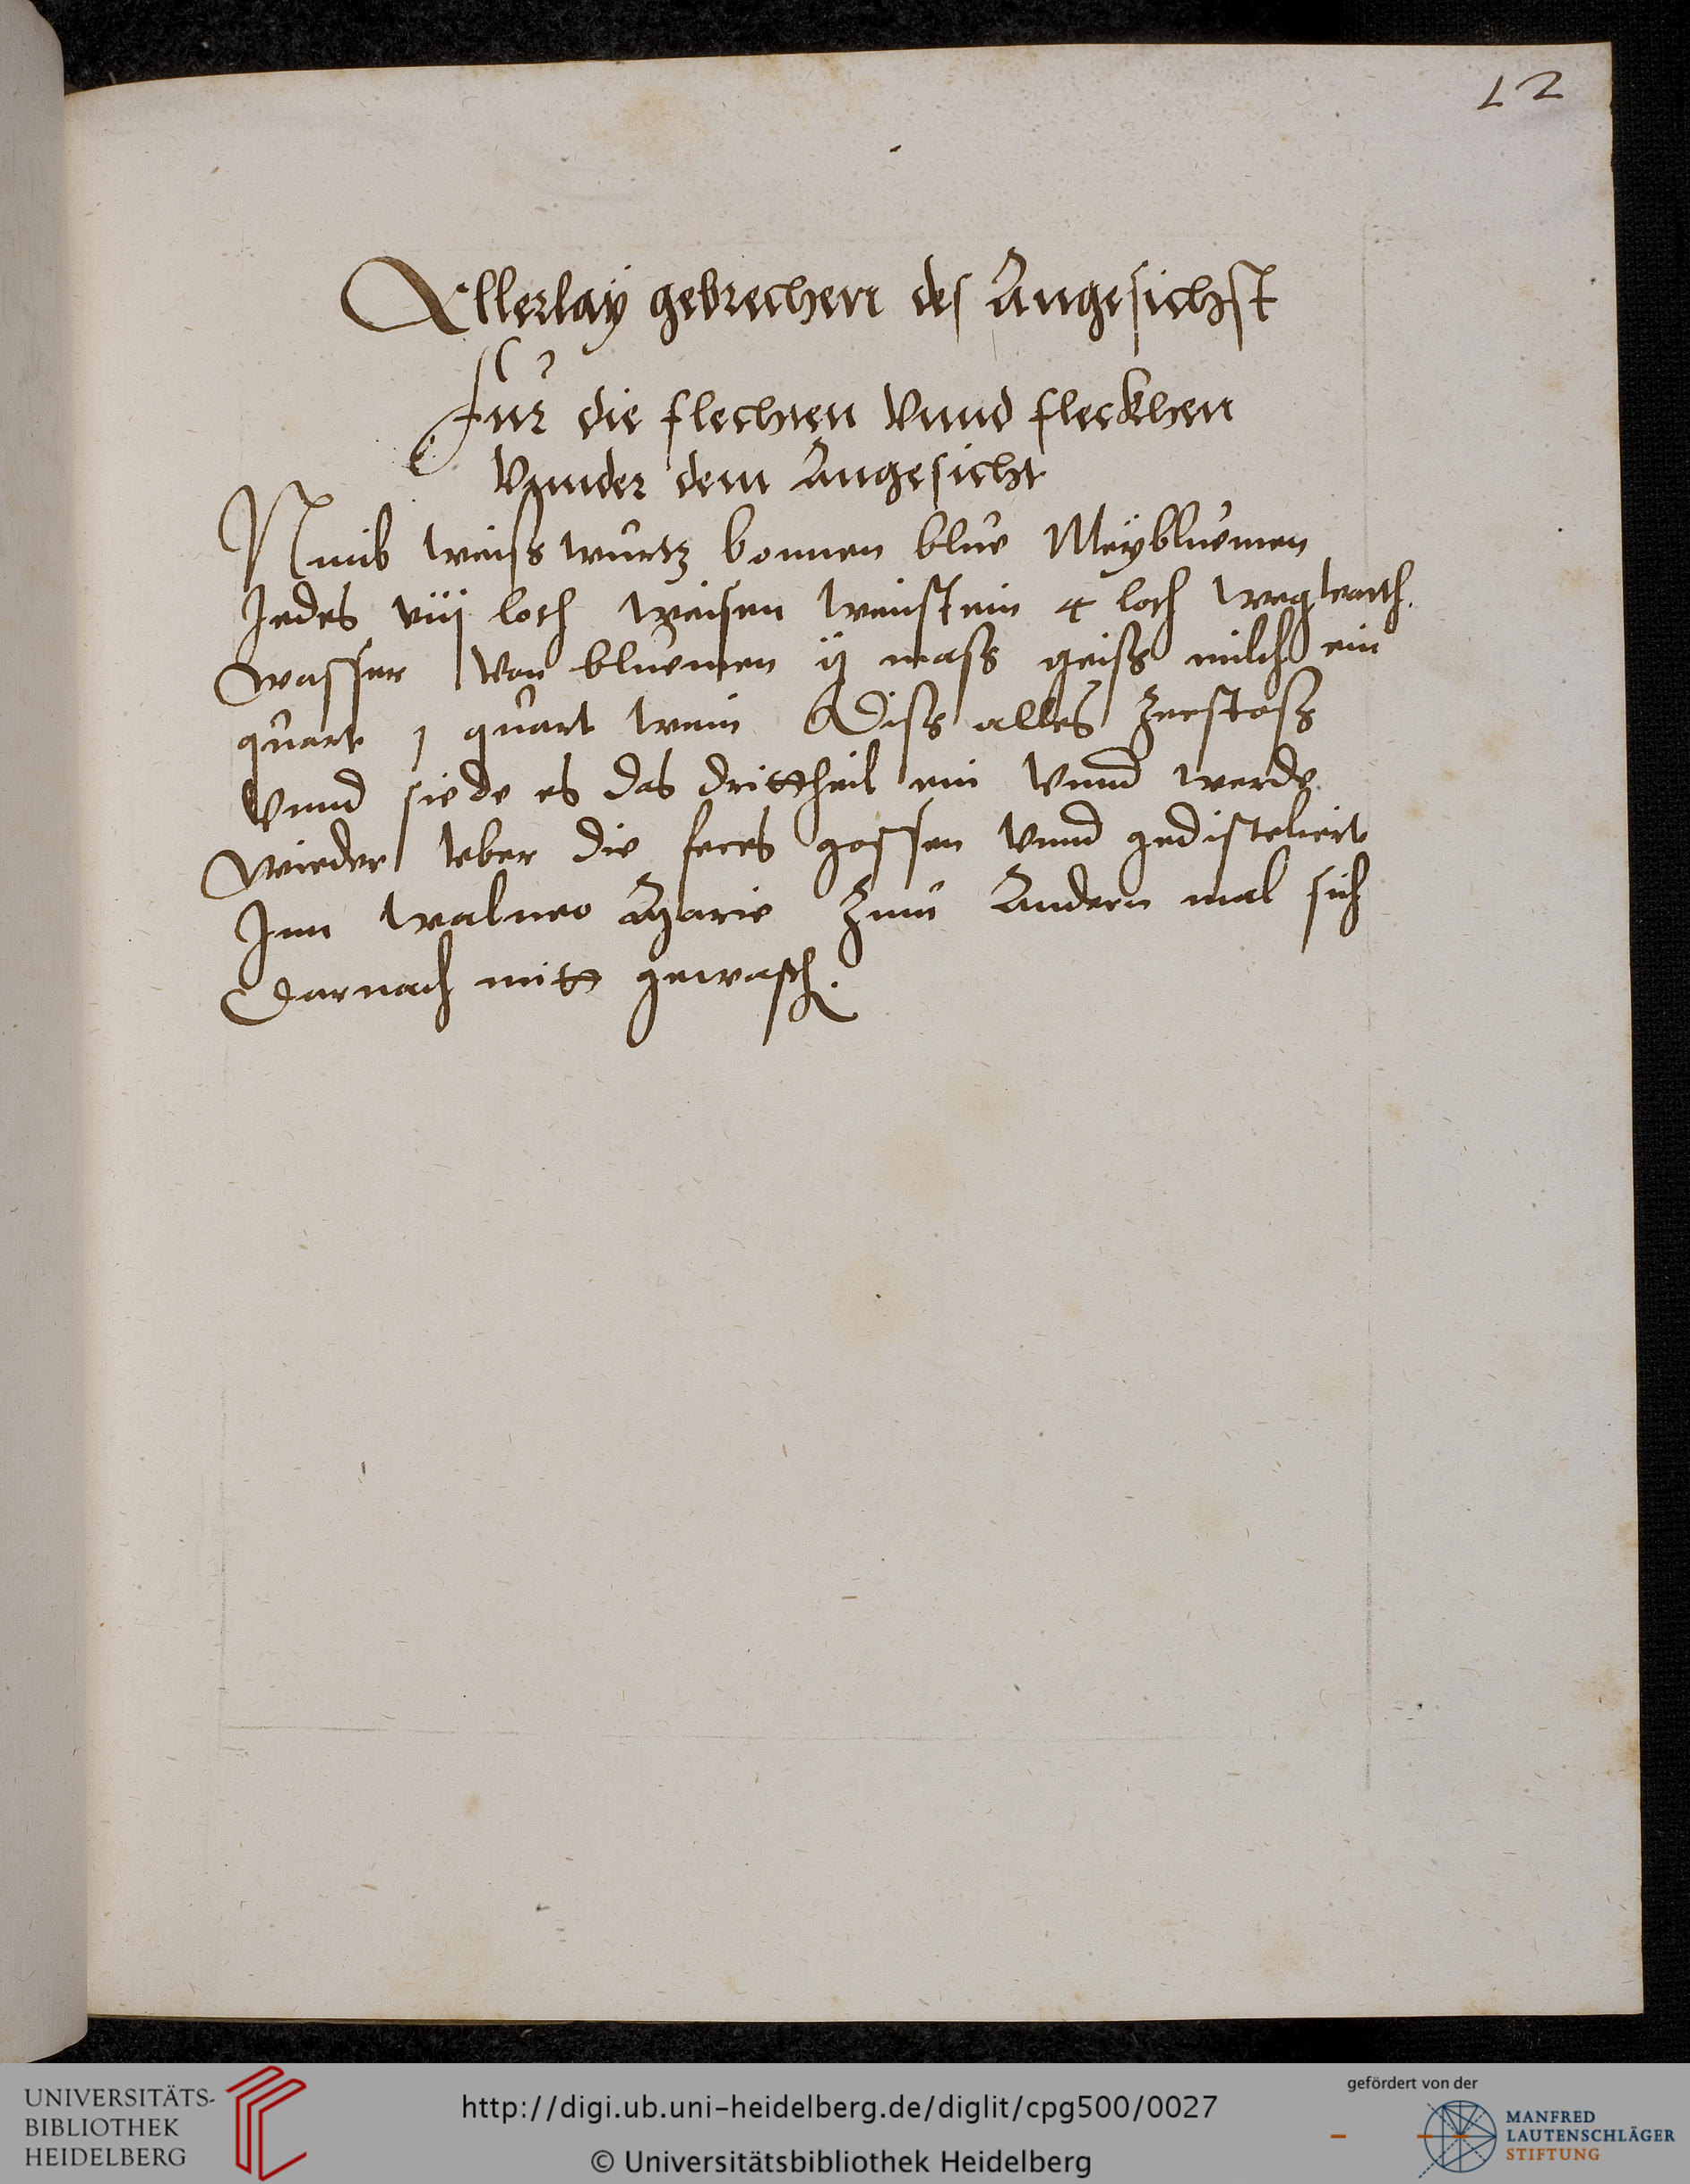 12
Allerlay gebrechen des Angesichst
Fur die flechten Vnnd fleckhen
Vnnder dem Angesicht
Nimb weiss wurtz bonnen blue Meybluemen
Jedes viij loth weisen weinstein 4 loth wegwarth.
wasser von bluemen ij mass geiss milch ein
quart j quart wein Diss alles Zerstoss
Vnnd siede es das drittheil ein Vnnd werde
wieder veber die feces gossen Vnnd gedisteliert
Jnn walneo Marie Zum Andern mal sich
Darnach mitt gewasch.
UNIVERSITÄTS-
BIBLIOTHEK
HEIDELBERG
http://digi.ub.uni-heidelberg.de/diglit/cpg500/0027
© Universitätsbibliothek Heidelberg
gefördert von der
MANFRED
LAUTENSCHLÄGER
STIFTUNG